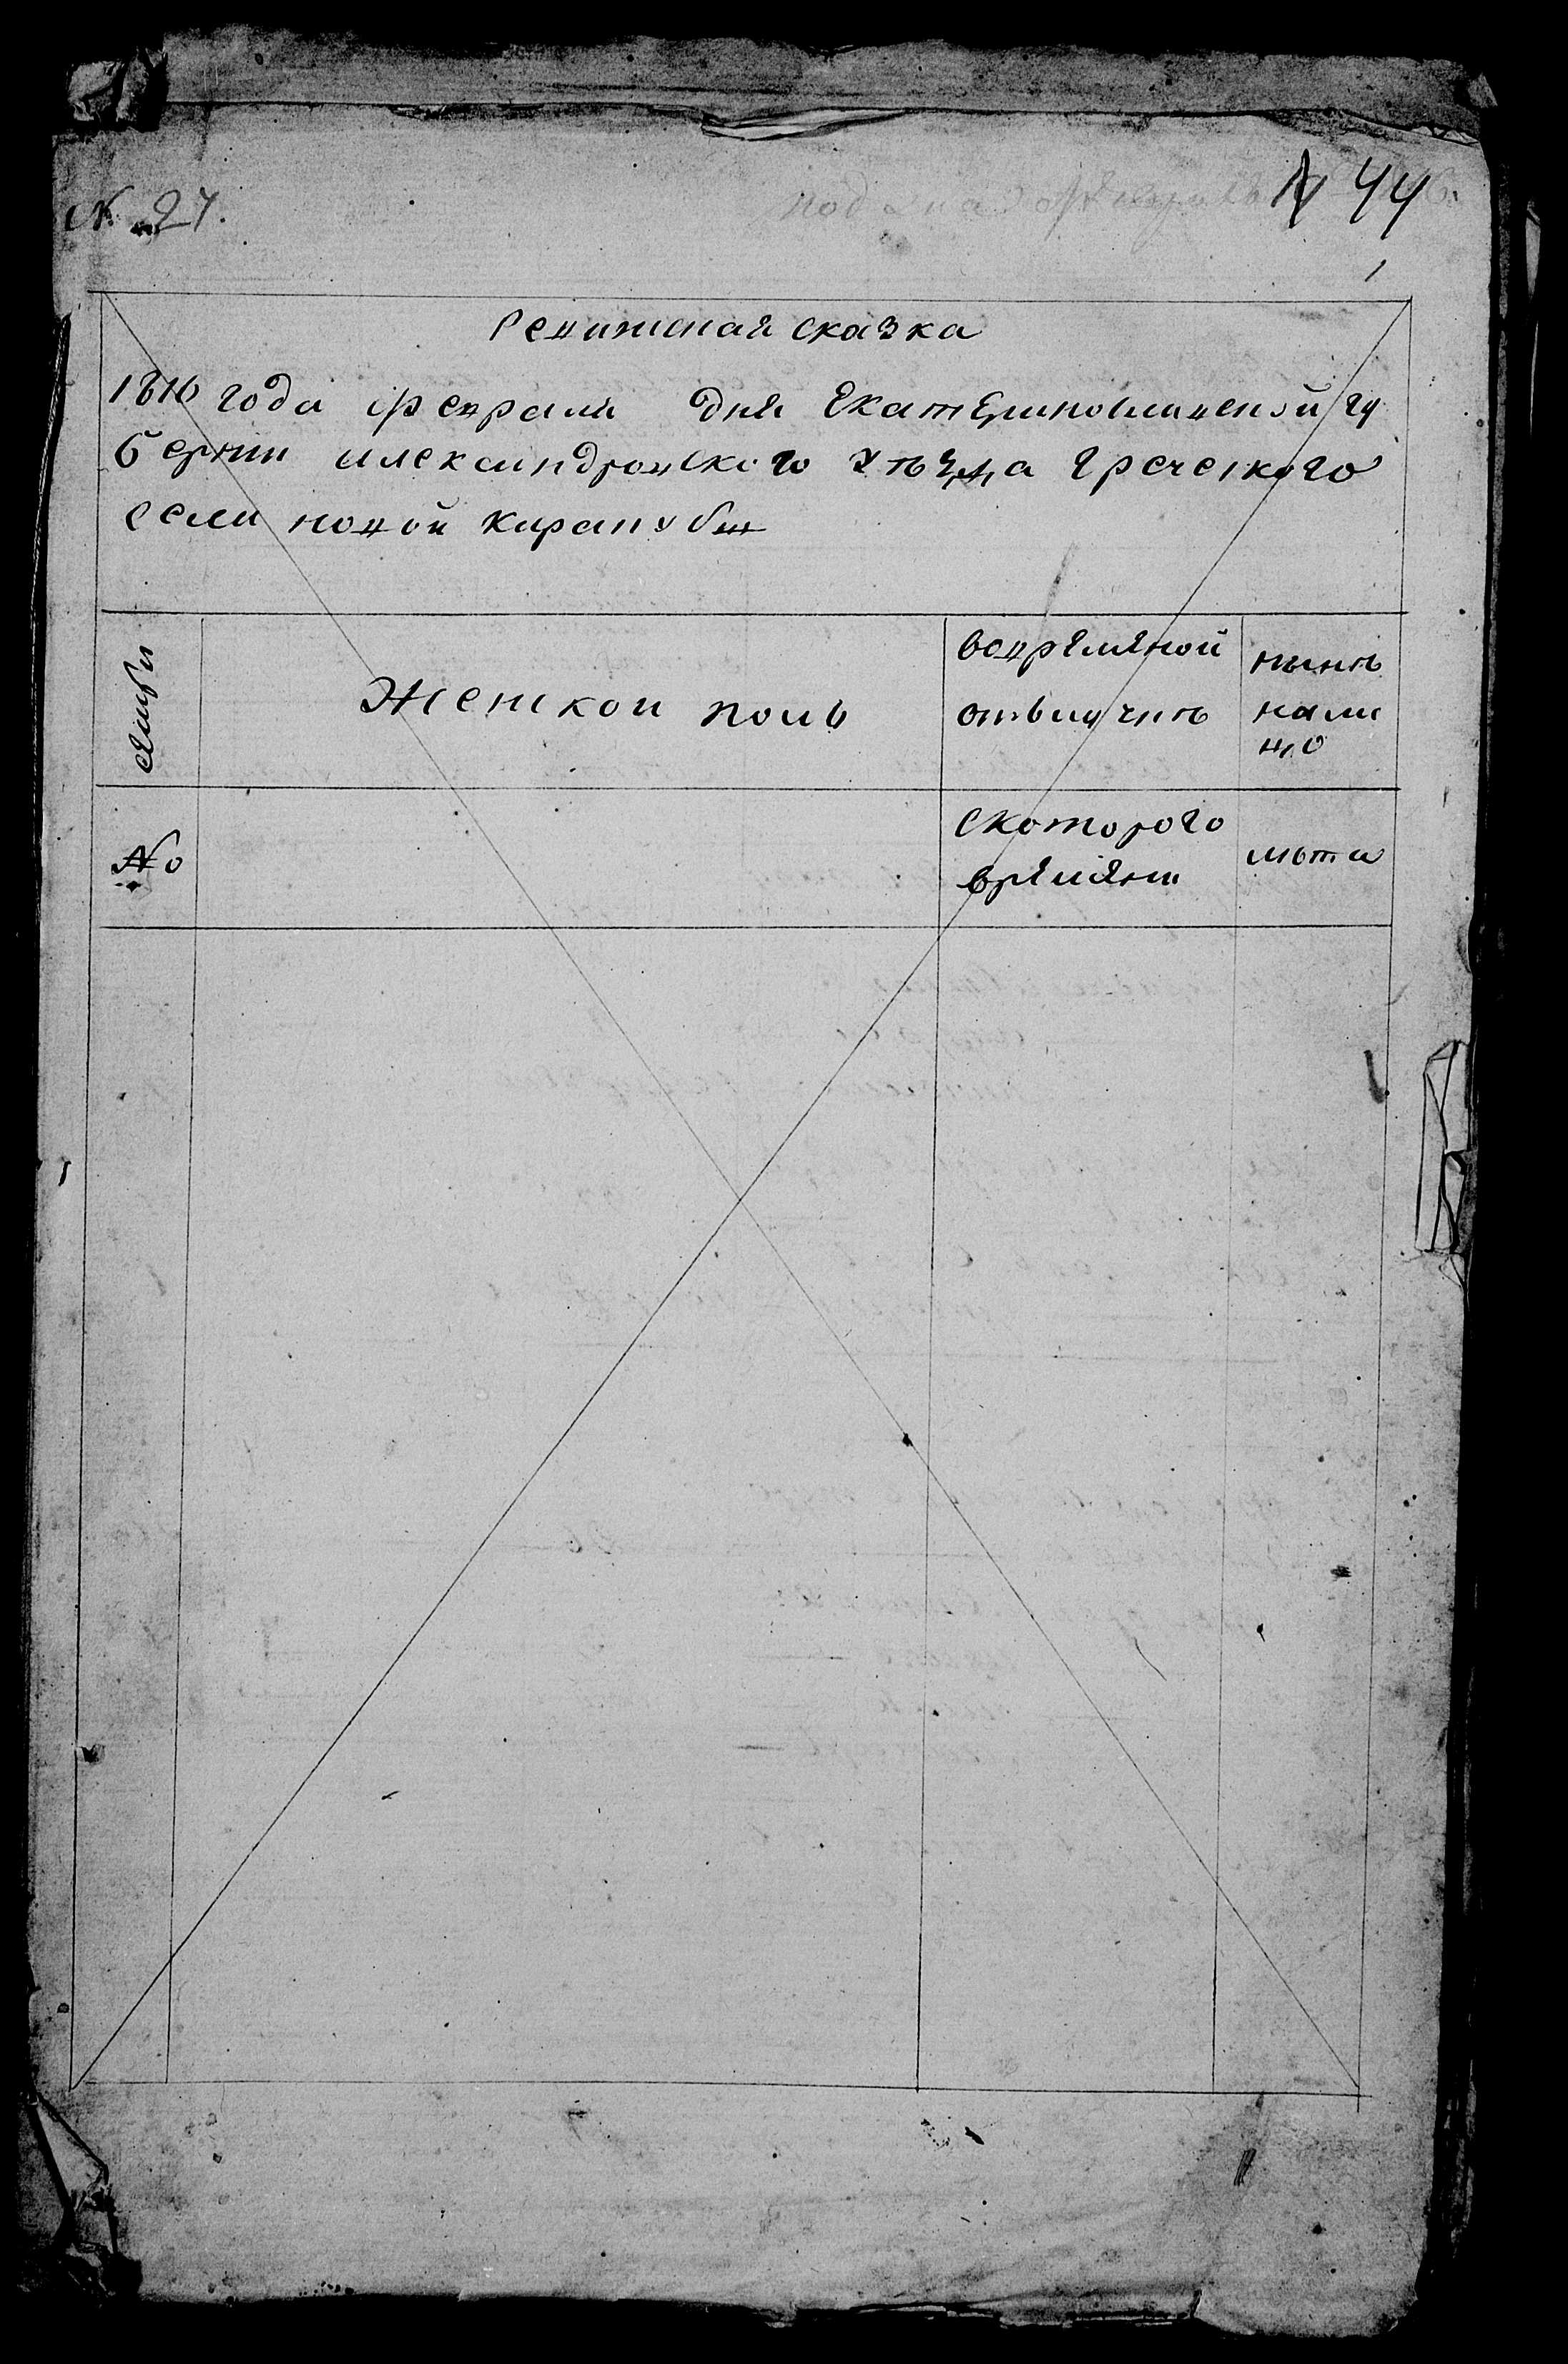 № 27.
№ 44
1
Ревижская сказка
1816 года февраля дня Екатериновлавской гу
Берни александровского уъзда греческого
села новой каракубы
семьи
Женской полъ
вовремяной
отълучкъ
нынъ
нали
цо
№
скоторого
времяни
лъта